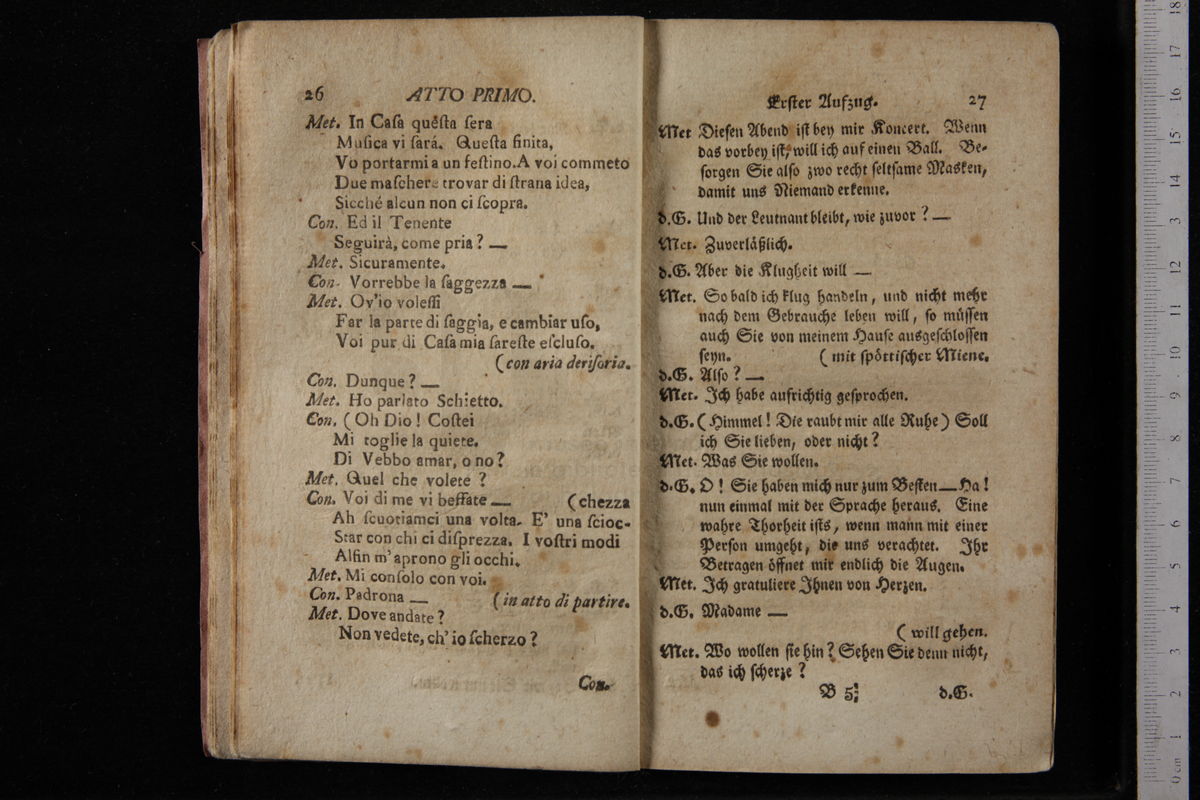 26 ATTO PRIMO.
Met. In Caſa quêſta ſera
Muſica vi ſará. Queſta finita,
Vo portarmi a un feſtino. A voi commeto
Due maſchere trovar di ſtrana idea,
Sicché alcun non ci ſcopra.
Con. Ed il Tenente
Seguirà, come pria? —
Met. Sicuramente.
Con. Vorrebbe la ſaggezza —
Met. Ov'io voleſſi
Far la parte di ſaggia, e cambiar uſo,
Voi pur di Caſa mia ſareſte eſcluſo.
(con aria deriſoria.
Con. Dunque? —
Met. Ho parlato Schietto.
Con. (Oh Dio! Coſtei
Mi toglie la quiete.
Di Vebbo amar, o no?
Met. Quel che volete?
Con. Voi di me vi beffate — (chezza
Ah ſcuotiamci una volta. E' una ſcioc-
Star con chi ci diſprezza. I voſtri modi
Alfin m'aprono gli occhi.
Met. Mi conſolo con voi.
Con. Padrona — (in atto di partire.
Met. Dove andate?
Non vedete, ch'io ſcherzo?
Con.
Erſter Aufzug. 27
Met Dieſen Abend iſt bey mir Koncert. Wenn
das vorbey iſt, will ich auf einen Ball. Be-
ſorgen Sie alſo zwo recht ſeltſame Masken,
damit uns Niemand erkenne.
d.G. Und der Leutnant bleibt, wie zuvor? —
Met. Zuverläßlich.
d.G. Aber die Klugheit will —
Met. So bald ich klug handeln, und nicht mehr
nach dem Gebrauche leben will, ſo müſſen
auch Sie von meinem Hauſe ausgeſchloſſen
ſeyn. (mit ſpöttiſcher Miene.
d.G. Alſo? —
Met. Ich habe aufrichtig geſprochen.
d.G. (Himmel! Die raubt mir alle Ruhe) Soll
ich Sie lieben, oder nicht?
Met. Was Sie wollen.
d.G. O! Sie haben mich nur zum Beſten — Ha!
nun einmal mit der Sprache heraus. Eine
wahre Thorheit iſts, wenn mann mit einer
Perſon umgeht, die uns verachtet. Ihr
Betragen öffnet mir endlich die Augen.
Met. Ich gratuliere Ihnen von Herzen.
d.G. Madame —
(will gehen.
Met. Wo wollen ſie hin? Sehen Sie denn nicht,
das ich ſcherze?
B 5 d.G.
0 cm 1 2 3 4 5 6 7 8 9 10 11 12 13 14 15 16 17 18